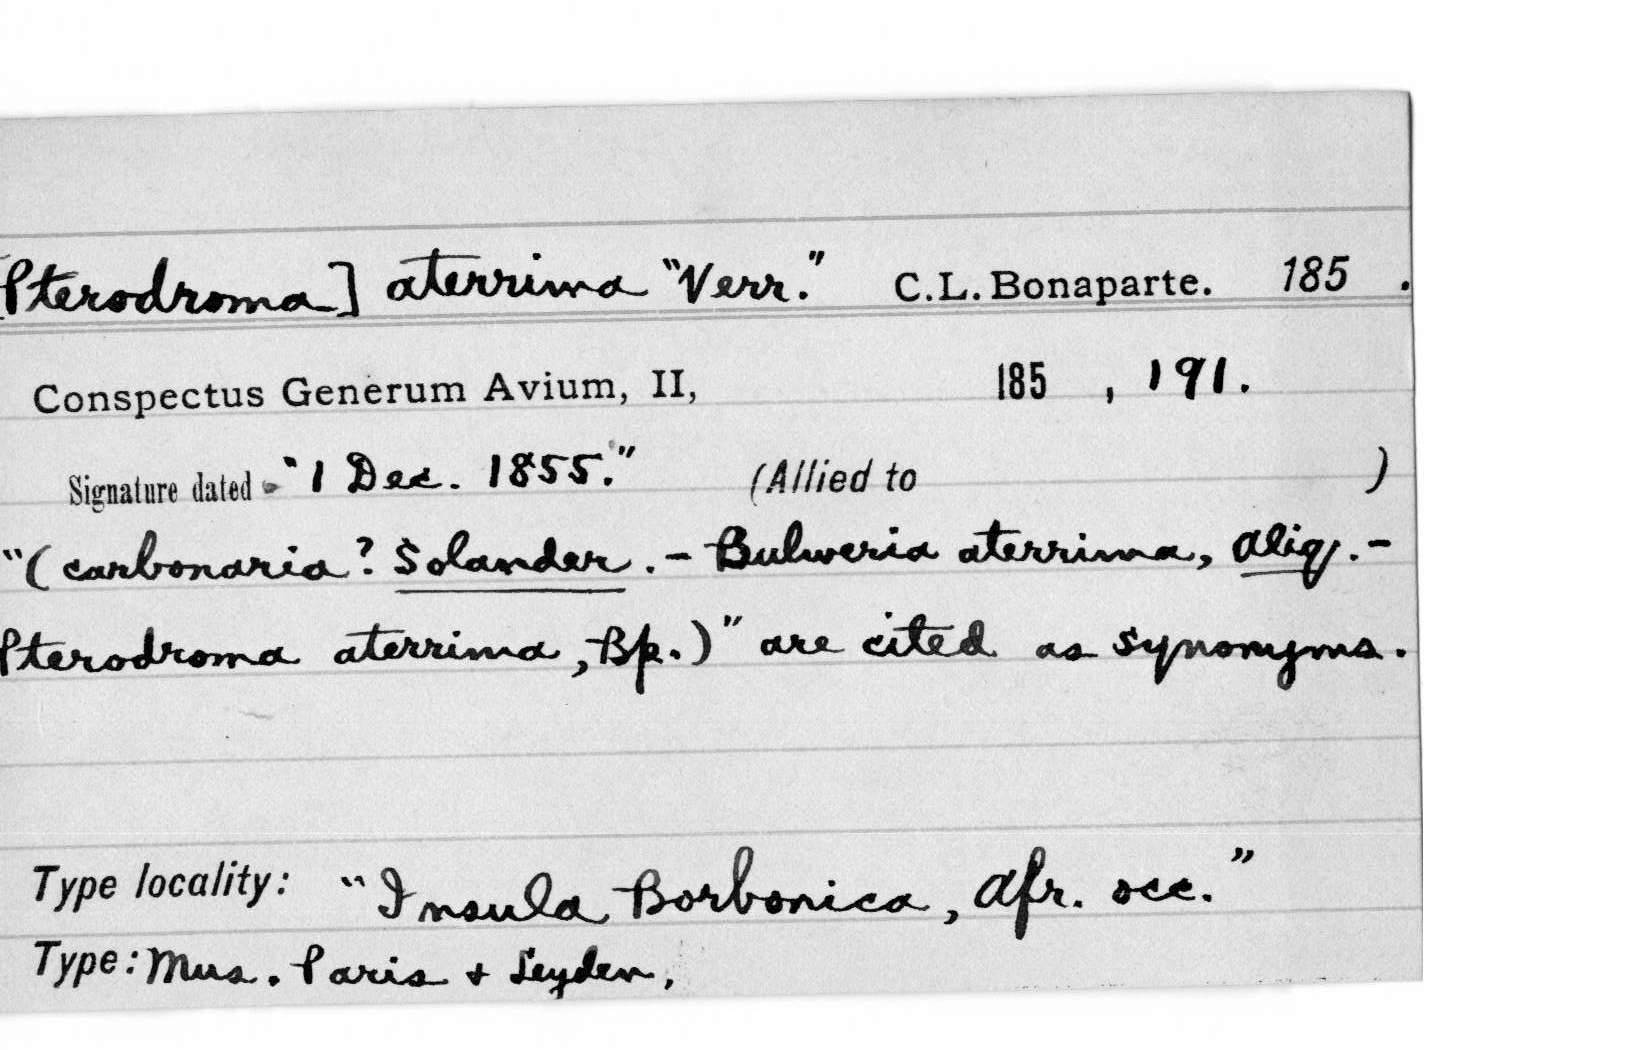 [Pterodroma] aterrima "Verr." C.L. Bonaparte. 185 .
Conspectus Generum Avium, II, 185 , 191.
Signature dated "1 Dec. 1855." (Allied to )
"(carbonaria? Solander. - Bulweria aterrima, Aliq. -
Pterodroma aterrima, Bp.)" are cited as synonyms.
Type locality: "Insula Borbonica, Afr. occ."
Type: Mus. Paris + Leyden,